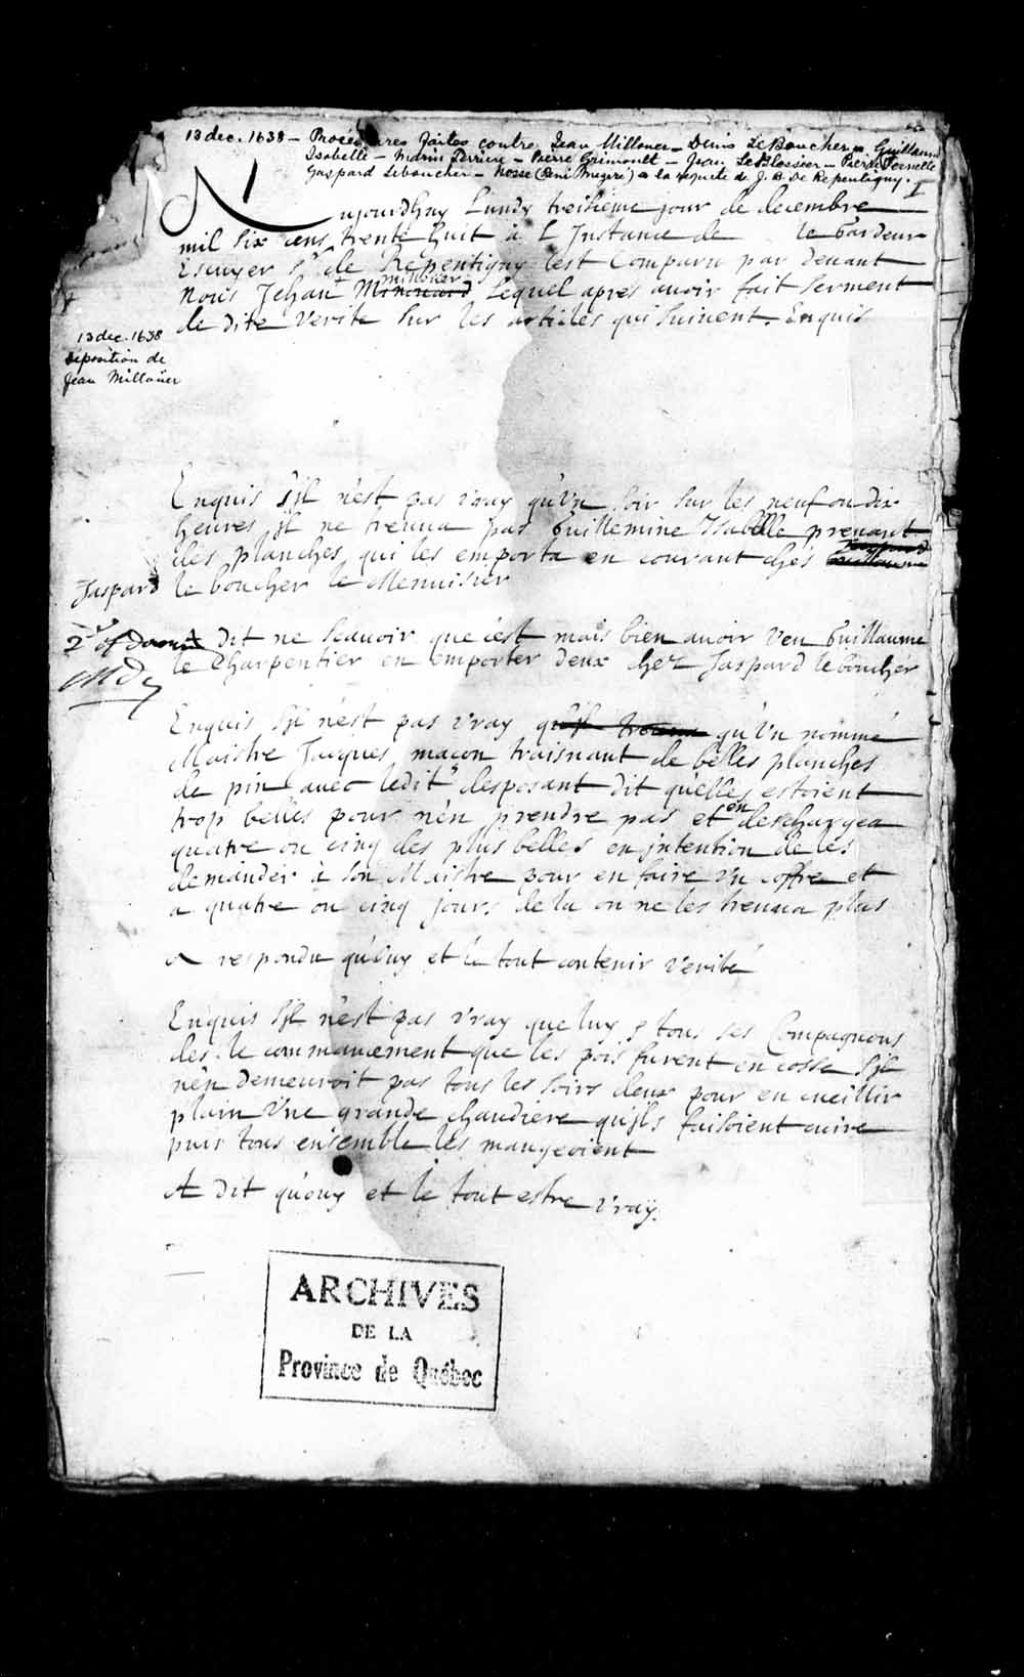 13 dec. 1638 - Procédures faites contre Jean Millouer - Denis Le Boucher - Guillaume
Isabelle - Marin Terrier - Pierre Grimoult - Jean Le Blossier - Pierre
Gaspard Leboucher - Nosse (René Mezeré) à la requête de J. B. De Repentigny.
I
Aujourdhuy Lundy treisieme jour de decembre
mil six cens trente huit à L Instance de le Gardeur
Escuyer Sr de Repentigny c'est Comparu par devant
millouer
Nous Jehan lequel apres auoir fait serment
de dire verite sur les articles qui suiuent. Enquis
13 dec. 1638
Déposition de
Jean Millouër
Enquis s'jl n'est pas vray qu'vn soir sur les neuf ou dix
heures jl ne treuua pas Guillemine Isabelle prenant
des planches qui les emporta en courant chés
Jaspard
Jaspard le boucher le Menuisier
Dit ne scauoir que c'est mais bien auoir veu Guillaume
le Charpentier en emporter deux chez Jaspard le boucher
Enquis s'jl n'est pas vray qu'jl treuua qu'vn nommé
Maistre Jacques macon traisnant de belles planches
de pin auec ledit desposant dit qu'elles estoient
trop belles pour n'en prendre pas et en deschargea
quatre ou cinq des plus belles en jntention de les
demander à son Maistre pour en faire vn coffre et
a quatre ou cinq jours de la on ne les treuua plus
A respondu qu'ouy et le tout contenir verité
Enquis s'jl n'est pas vray que luy & tous ses Compagnons
des le commancement que les pois furent en cosse s'jl
n'en demeuroit pas tous les soirs deux pour en cueillir
plain vne grande chaudiere qu'jls faisoient cuire
puis tous ensemble les mangeoient
A dit qu'ouy et le tout estre vray.
ARCHIVES
DE LA
Province de Québec